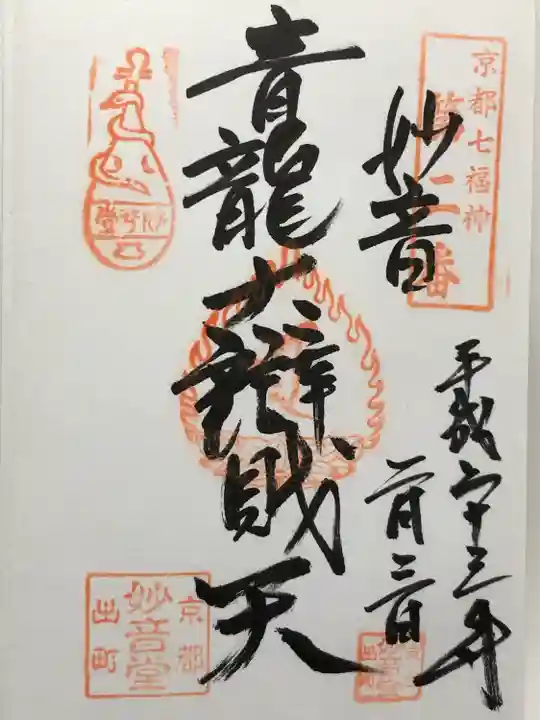 京都七福神
第二番
妙音
平成二十三年
二月三日
青龍大辯財天
妙音堂
京都
妙音堂
出町